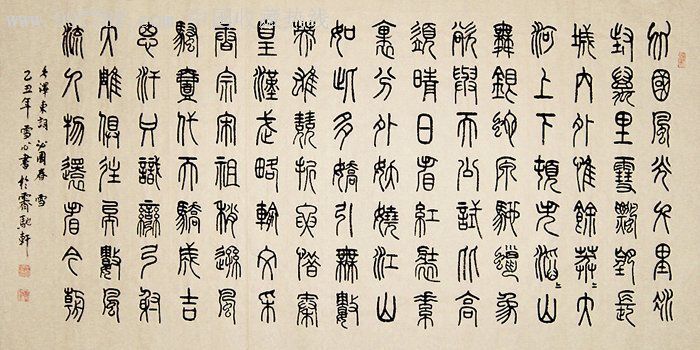 北國風光千里冰
封萬里雪飄望長
城內外惟餘莽〻大
河上下頓失滔〻山
舞銀蛇原馳蠟象
欲與天公試比高
須晴日看紅裝素
裹分外妖嬈江山
如此多嬌引無數
英雄競折腰惜秦
皇漢武略輸文采
唐宗宋祖稍遜風
騷壹代天驕成吉
思汗只識彎弓射
大雕俱往矣數風
流人物還看今朝
毛澤東詞 沁園春 雪
己丑年 雪心書於 軒